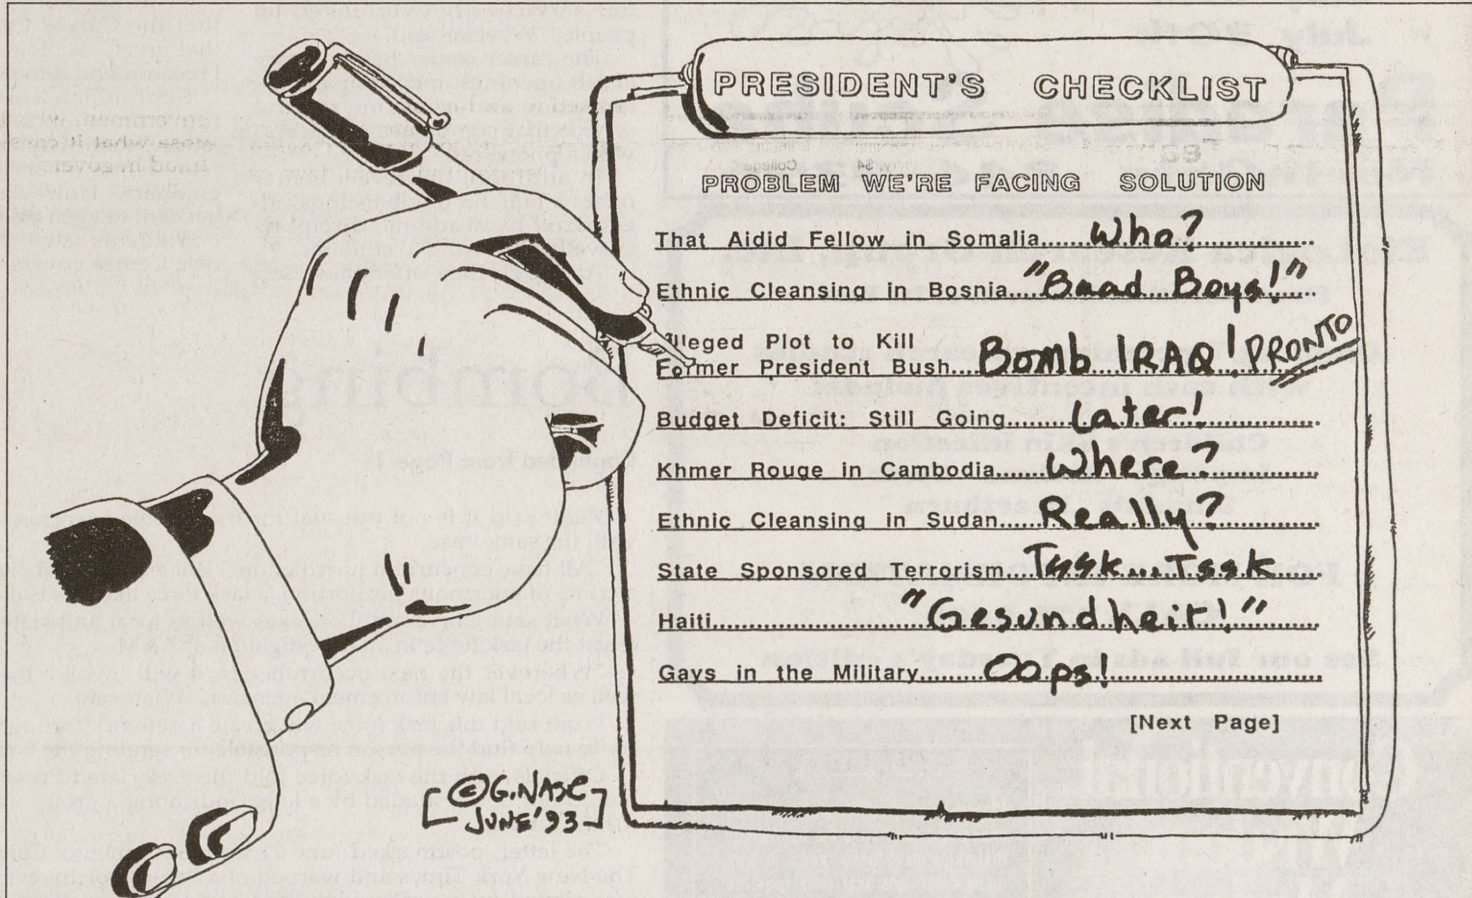 PRESIDENT'S CHECKLIST
PROBLEM WE'RE FACING SOLUTION
That Aidid Fellow in Somalia......Who?................
Ethnic Cleansing in Bosnia...."Baad Boys!"....
lleged Plot to Kill
Former President Bush....Bomb IRAQ! PRONTO
Budget Deficit: Still Going.......Later!................
Khmer Rouge in Cambodia......Where?...............
Ethnic Cleansing in Sudan.....Really?...............
State Sponsored Terrorism...Tssk...Tssk......
Haiti........................."Gesundheit!"........
Gays in the Military........OOps!........................
[Next Page]
©G.NASE
JUNE'93